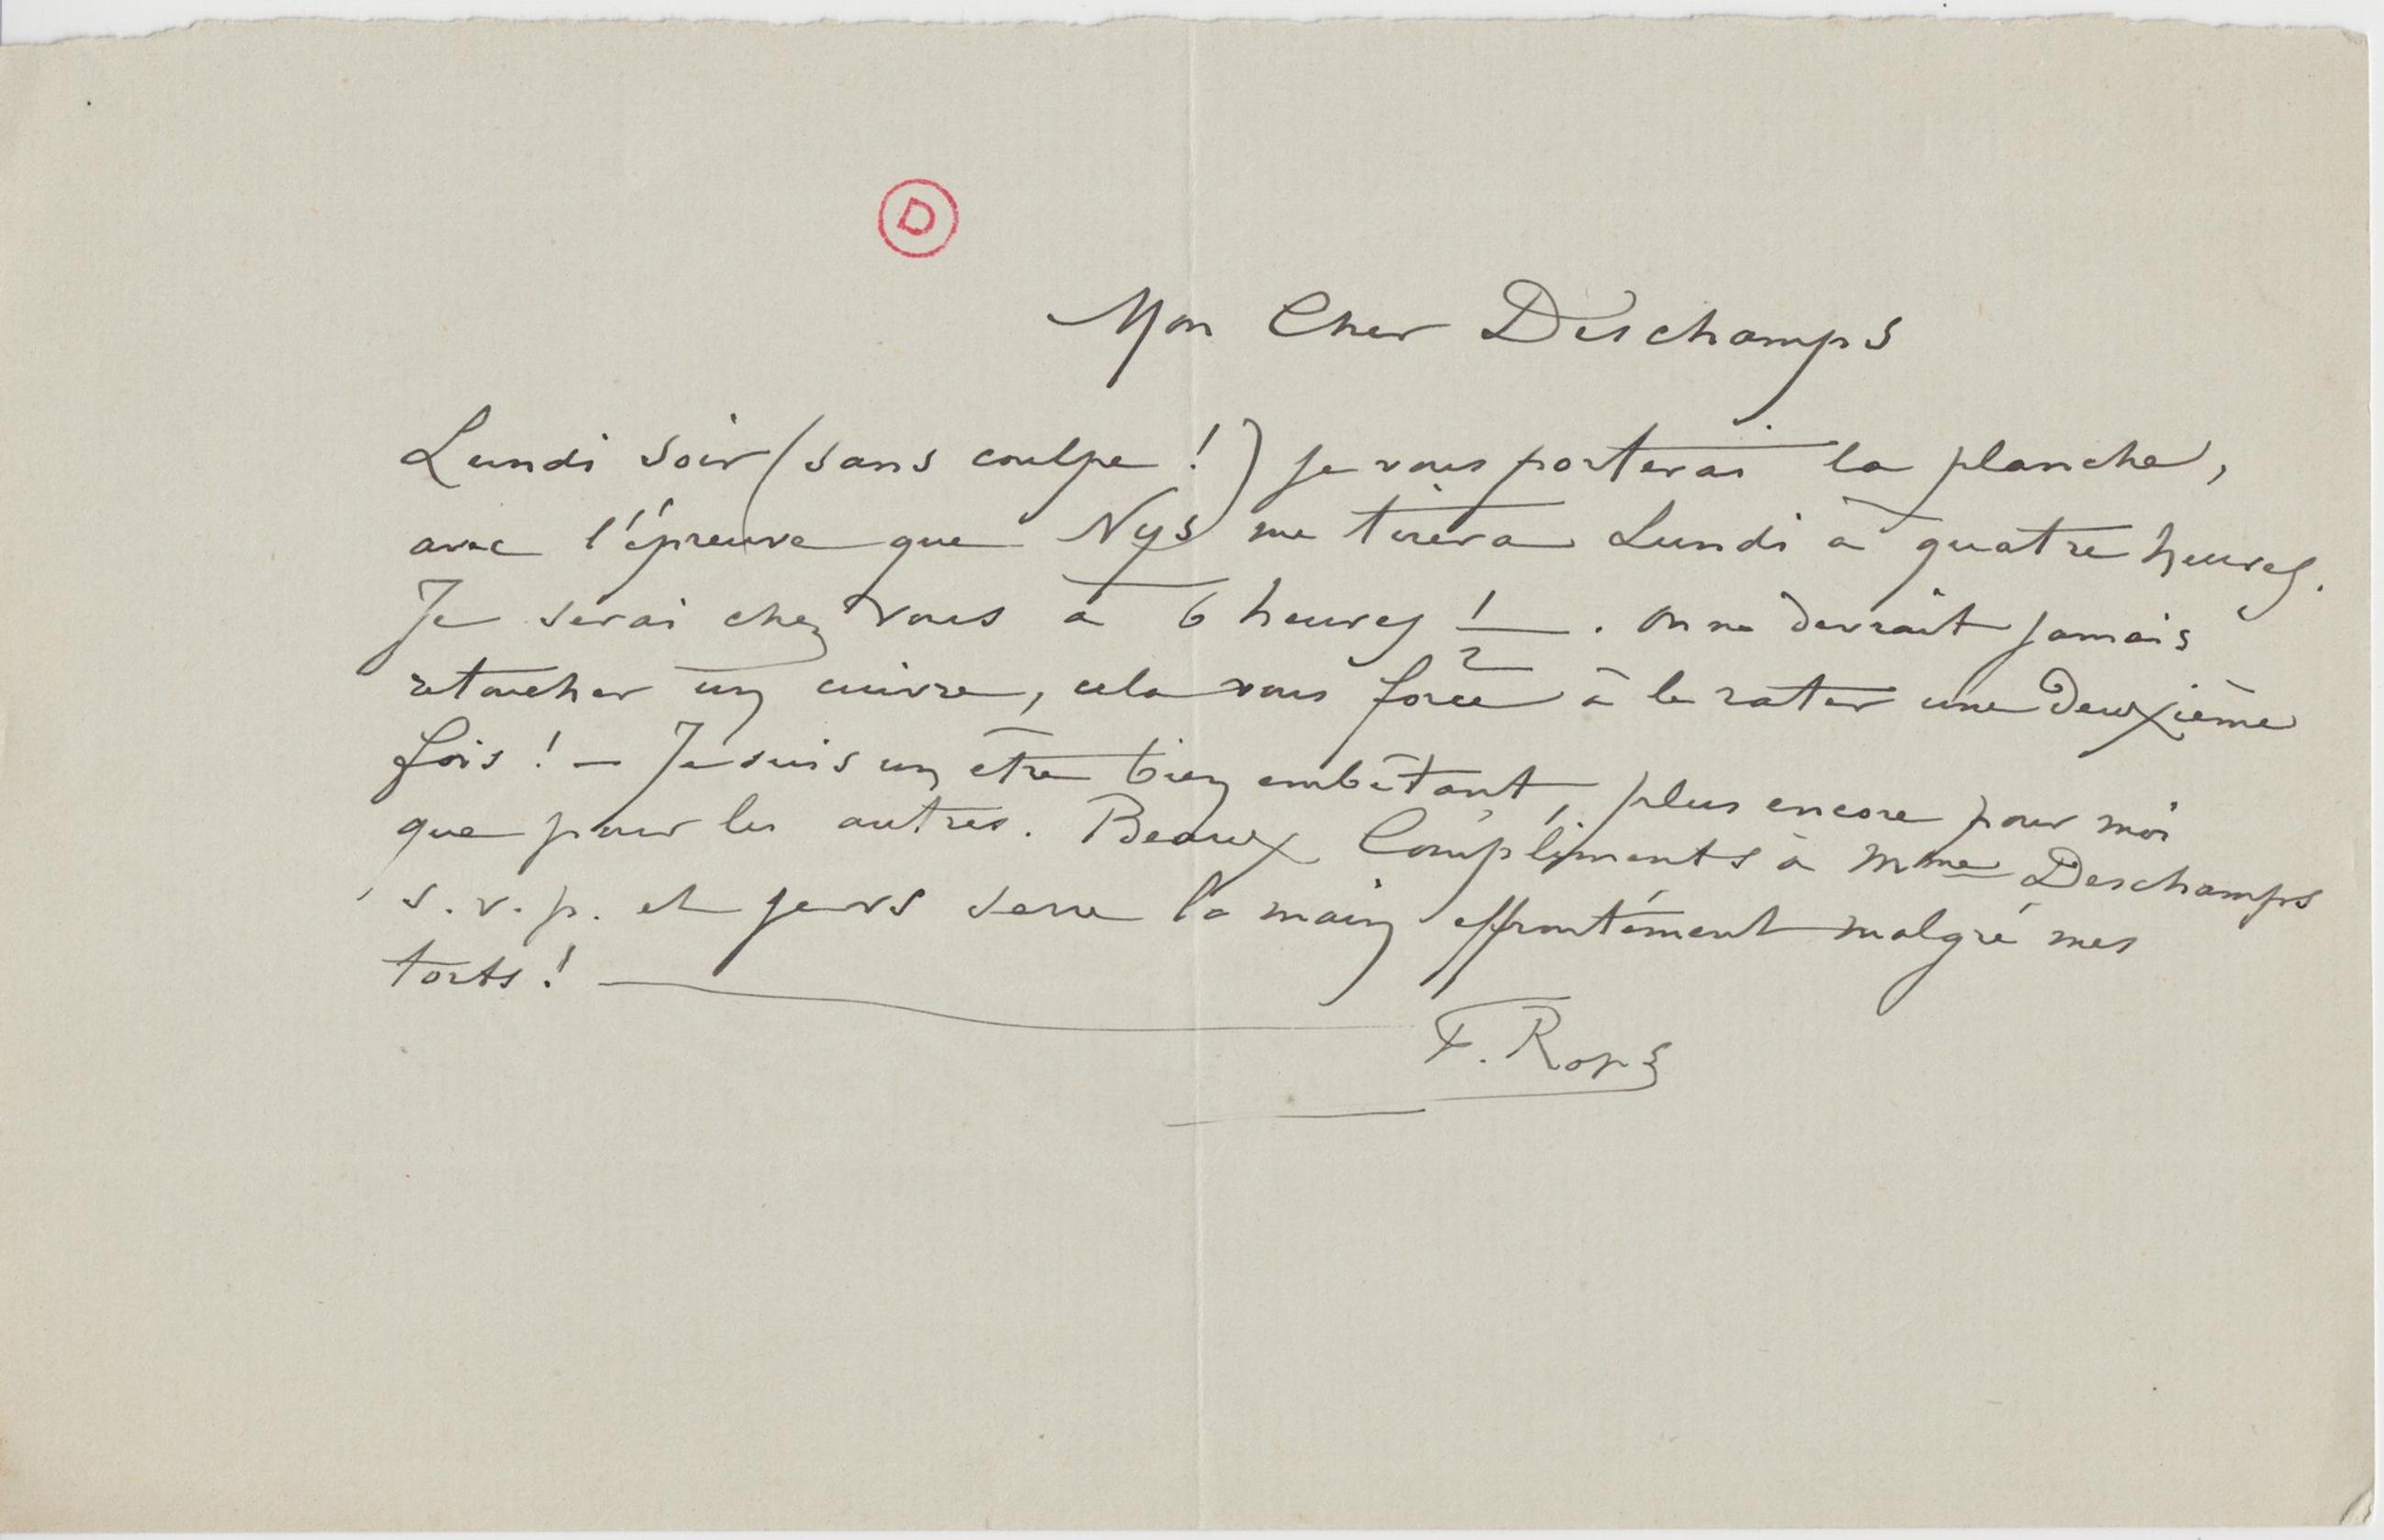 D
Mon Cher Deschamps
Lundi soir (sans coulpe !) je vous porterai la planche,
avec l'épreuve que Nys me tirera Lundi à quatre heures.
Je serai chez vous à 6 heures 1/2. On ne devrait jamais
retoucher un cuivre, cela vous force à le rater une deuxième
fois ! — Je suis un être bien embêtant, plus encore pour moi
que pour les autres. Beaux Compliments à Mme Deschamps
s.v.p. et je vs serre la main effrontément malgré mes
torts !
F. Rops